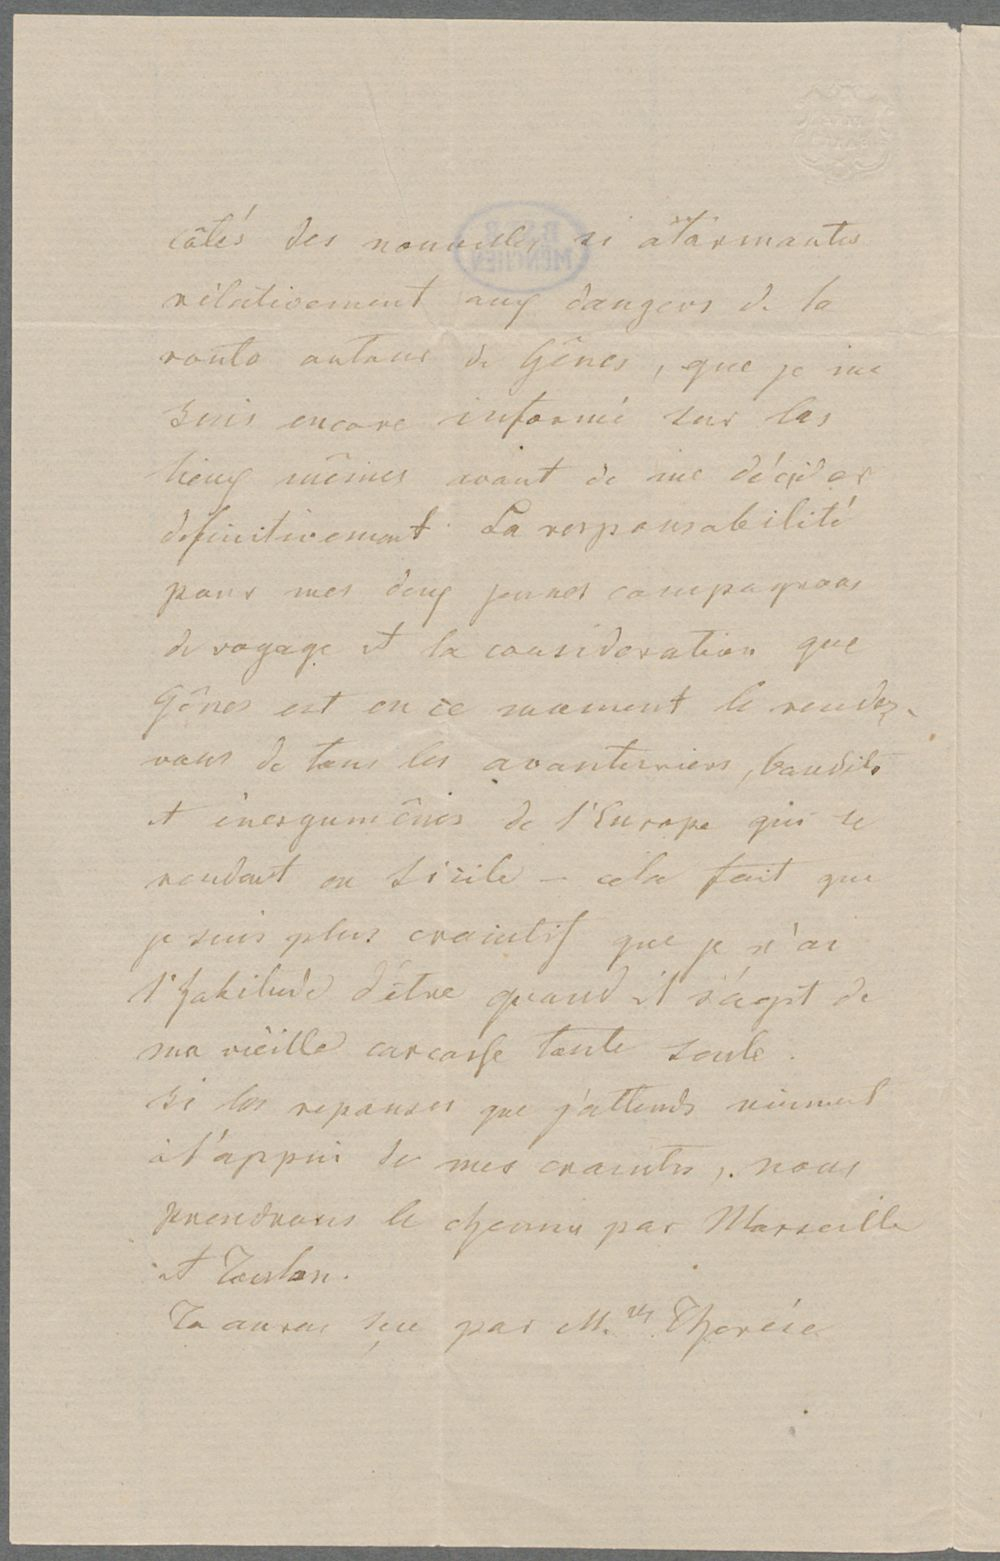 côtés des nouvelles si alarmantes
rélativement aux dangers de la
route autour de Gênes, que je me
suis encore informé sur les
lieux mêmes avant de me décider
définitivement. La responsabilité
pour mes deux jeunes compagnons
de voyage et la consideration que
Gênes est en ce moment le rendez-
vous de tous les avanturiers, bandits
et énergumènes de l'Europe qui se
rendent en Sicile — cela fait que
je suis plus craintif que je n'ai
l'habitude d'être quand il s'agit de
ma vieille carcasse toute seule.
Si les reponses que j'attends viennent
à l'appui de mes craintes, nous
prendrons le chemin par Marseille
et Toulon.
Tu auras sçu par M.lle Therése